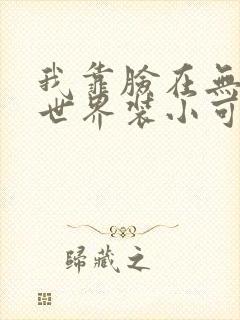 我靠臉在無
世界裝小可
歸藏之